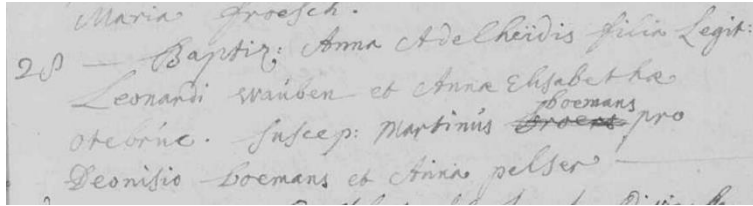 Maria froesch.
28 — Baptiz: Anna Adelheidis filia Legit:
Leonardi wauben et Annæ Elisabethæ
otebruc. Suscep: Martinus boemans pro
Deonisio boemans et Anna pelser